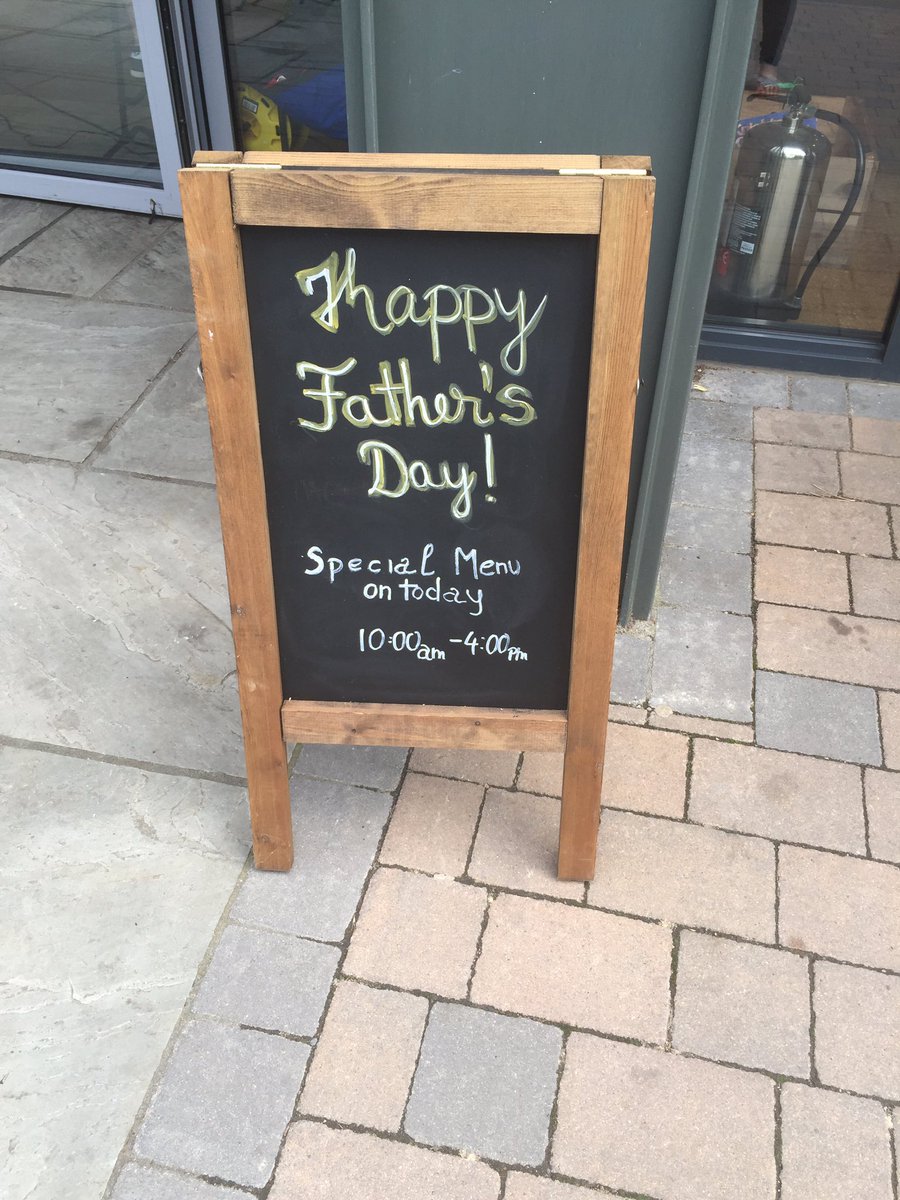 Happy
Father's
Day!
Special Menu
on today
10:00am - 4:00pm